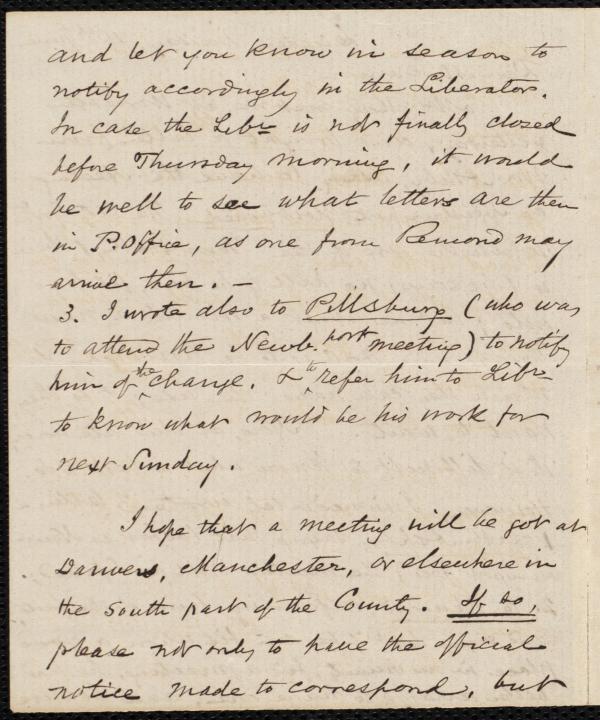 and let you know in season to
notify accordingly in the Liberator.
In case the Libr is not finally closed
before Thursday morning, it would
be well to see what letters are then
in P. Office, as one from Remond may
arrive then. —
3. I wrote also to Pillsbury (who was
to attend the Newb.port meeting) to notify
him of the change. & to refer him to Libr
to know what would be his work for
next Sunday.
I hope that a meeting will be got at
Danvers, Manchester, or elsewhere in
the South part of the County. If so,
please not only to have the official
notice made to correspond, but